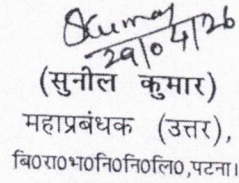 SKumar
29/04/26
(सुनील कुमार)
महाप्रबंधक (उत्तर),
बि0रा0भ0नि0नि0लि0,पटना।